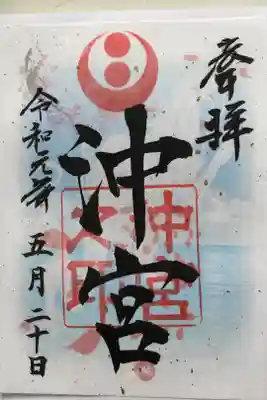 奉拝
沖宮
沖宮之印
令和元年 五月二十日